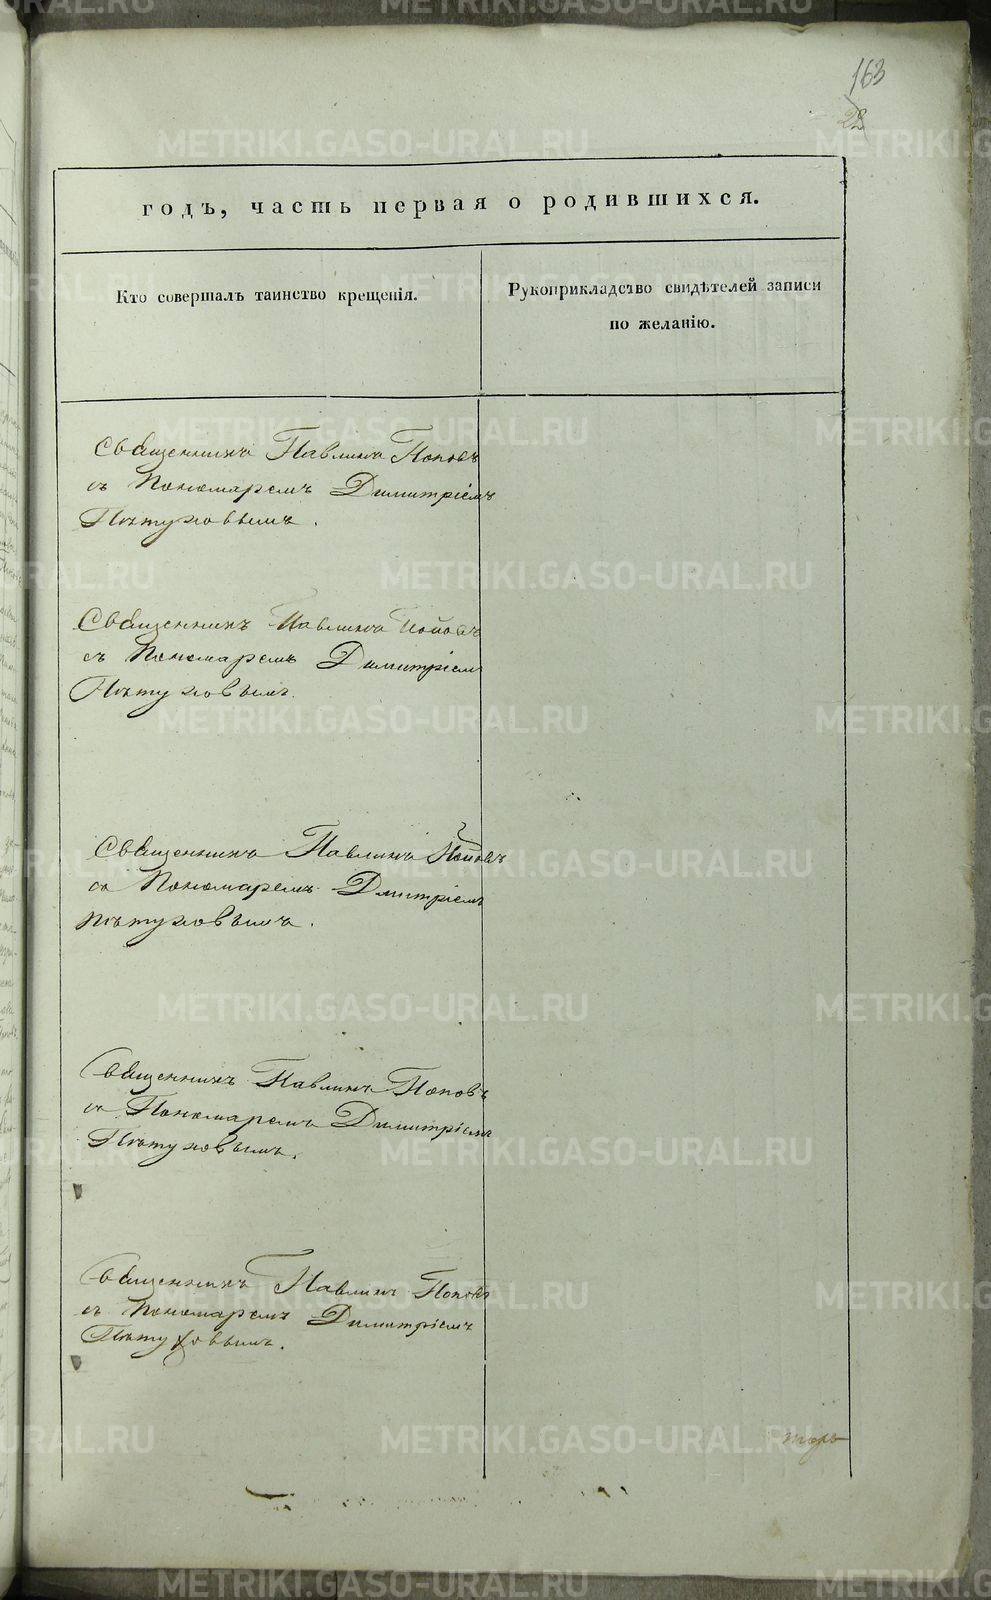 163
22
годъ, часть первая о родившихся.
Кто совершалъ таинство крещенія.
Рукоприкладство свидѣтелей записи
по желанію.
Священникъ Павлинъ Поповъ
съ Пономаремъ Димитріемъ
Пѣтуховымъ.
Священникъ Павлинъ Поповъ
съ Пономаремъ Димитріемъ
Пѣтуховымъ
Священникъ Павлинъ Поповъ
съ Пономаремъ Дмитріемъ
Пѣтуховымъ.
Священникъ Павлинъ Поповъ
съ Пономаремъ Димитріемъ
Пѣтуховымъ.
Священникъ Павлинъ Поповъ
съ Пономаремъ Димитріемъ
Пѣтуховымъ.
METRIKI.GASO-URAL.RU